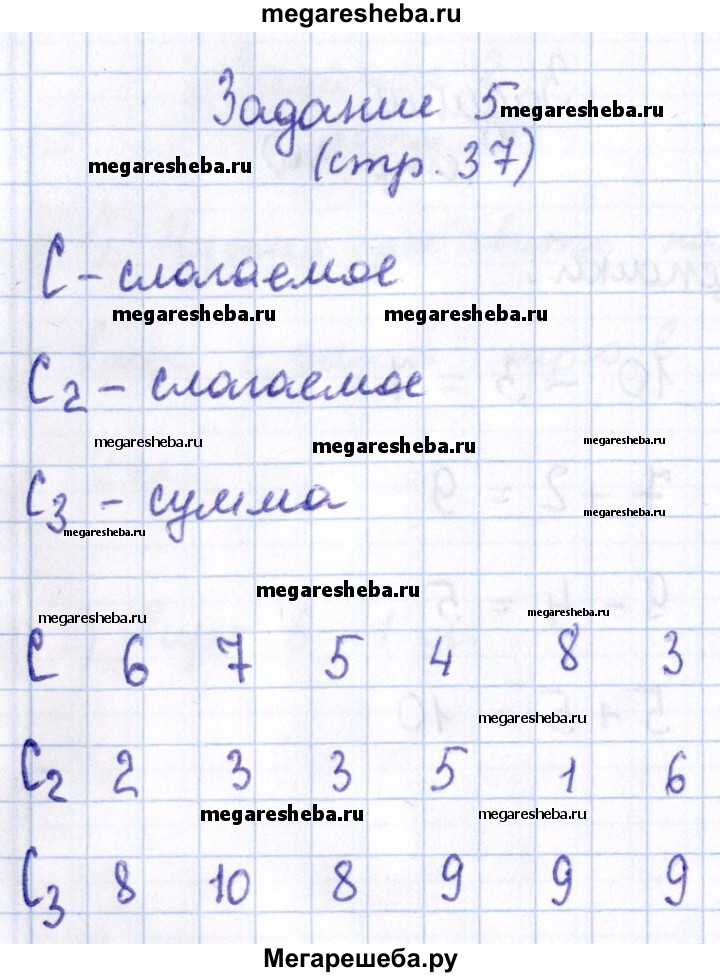 megaresheba.ru
Задание 5 megaresheba.ru
megaresheba.ru (стр. 37)
С – слагаемое
megaresheba.ru megaresheba.ru
С2 – слагаемое
megaresheba.ru megaresheba.ru megaresheba.ru
С3 – сумма
megaresheba.ru megaresheba.ru
megaresheba.ru
megaresheba.ru megaresheba.ru
С 6 7 5 4 8 3
megaresheba.ru
С2 2 3 3 5 1 6
megaresheba.ru megaresheba.ru
С3 8 10 8 9 9 9
Мегарешеба.ру